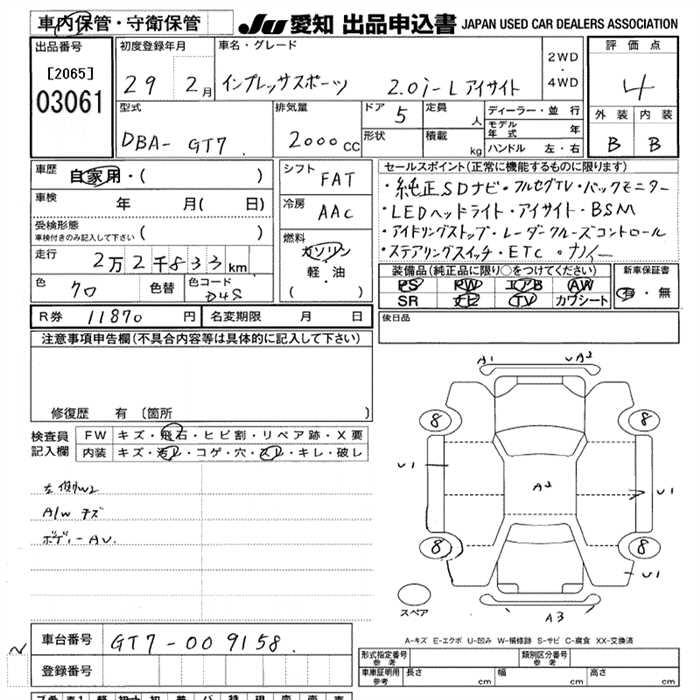 車内保管・守衛保管
JU 愛知 出品申込書 JAPAN USED CAR DEALERS ASSOCIATION
出品番号
[2065]
03061
初度登録年月
29 2月
車名・グレード
インプレッサスポーツ 2.0i-L アイサイト
2WD
・
4WD
評価点
4
外装 内装
B B
型式
DBA- GT7
排気量
2000cc
ドア 5
形状
定員 人
積載 kg
ディーラー・並行
モデル年式 年
ハンドル 左・右
車歴
自家用・( )
車検 年 月( 日)
受検形態
車検付きのみ記入して下さい ( )
走行 2万2千833km
色 クロ 色替 色コード D4S
シフト FAT
冷房 AAC
燃料
ガソリン
軽・油
( )
セールスポイント(正常に機能するものに限ります)
・純正SDナビ・フルセグTV・バックモニター
・LEDヘッドライト・アイサイト・BSM
・アイドリングストップ・レーダークルーズコントロール
・ステアリングスイッチ・ETC
装備品(純正品に限り○をつけてください)
PS PW エアB AW
SR ナビ TV カワシート
新車保証書
有・無
R券 11870円 名変期限 月 日
後日品
注意事項申告欄(不具合内容等は具体的に記入して下さい)
修復歴 有 〔箇所 〕
検査員記入欄
FW キズ・飛石・ヒビ割・リペア跡・X要
内装 キズ・汚レ・コゲ・穴・スレ・キレ・破レ
左側W2
A/W キズ
ボデーAU.
A1 UA2
8 8
U1 A2 U1
8 8
U1
A3
スペア
A-キズ E-エクボ U-凹み W-補修跡 S-サビ C-腐食 XX-交換済
車台番号 GT7-009158
登録番号
形式指定番号 参考 類別区分番号 参考
車車証明用 参考 長さ cm 幅 cm 高さ cm